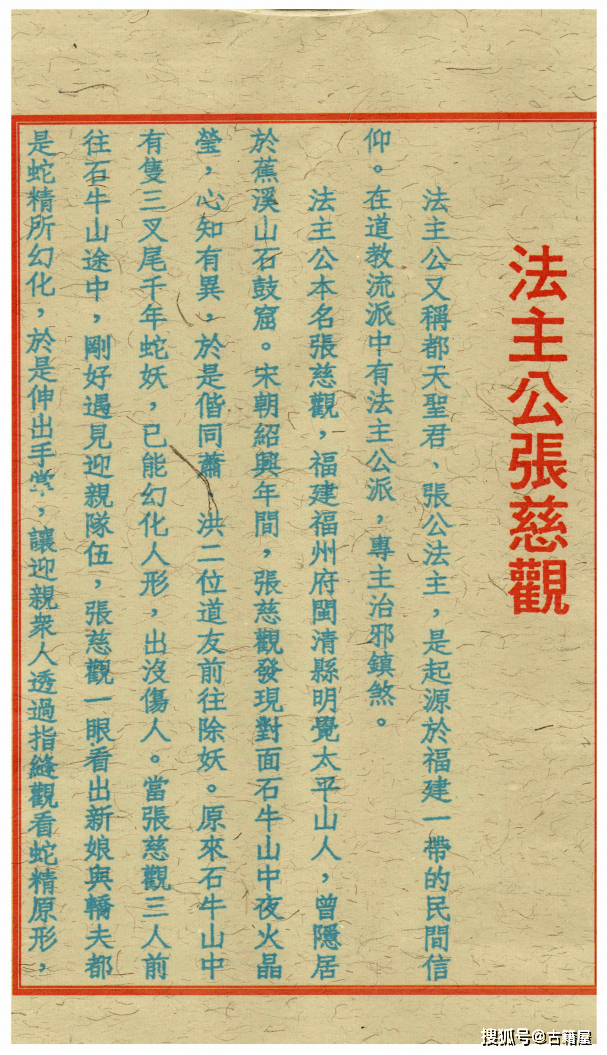 法主公張慈觀
法主公又稱都天聖君、張公法主，是起源於福建一帶的民間信
仰。在道教流派中有法主公派，專主治邪鎮煞。
法主公本名張慈觀，福建福州府閩清縣明覺太平山人，曾隱居
於蕉溪山石鼓窟。宋朝紹興年間，張慈觀發現對面石牛山中夜火晶
瑩，心知有異，於是偕同蕭　洪二位道友前往除妖。原來石牛山中
有隻三叉尾千年蛇妖，已能幻化人形，出沒傷人。當張慈觀三人前
往石牛山途中，剛好遇見迎親隊伍，張慈觀一眼看出新娘與轎夫都
是蛇精所幻化，於是伸出手掌，讓迎親衆人透過指縫觀看蛇精原形，
搜狐号@古籍屋